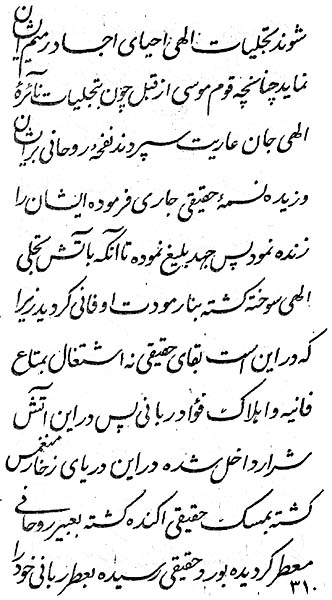 شوند تجلیات الهی احیای اجساد رمیم ایشان
نماید چنانچه قوم موسی از قبل چون بتجلیات نائرهٔ
الهی جان عاریت سپردند نفحهٔ روحانی برایشان
وزیده نسمهٔ حقیقی جاری فرموده ایشان را
زنده نمود پس جهد بلیغ نموده تا آنکه بآتش تجلی
الهی سوخته کشته بنار مودت او فانی کردید زیرا
که در این است بقای حقیقی نه اشتغال بمتاع
فانیه و اهلاک فؤاد ربانی پس در این آتش
شرار داخل شده در این دریای زخار منغمس
کشته بمسک حقیقی اکنده کشته بعبیر روحانی
معطر کردیده بورد حقیقی رسیده بعطر ربانی خود را
۳۱۰